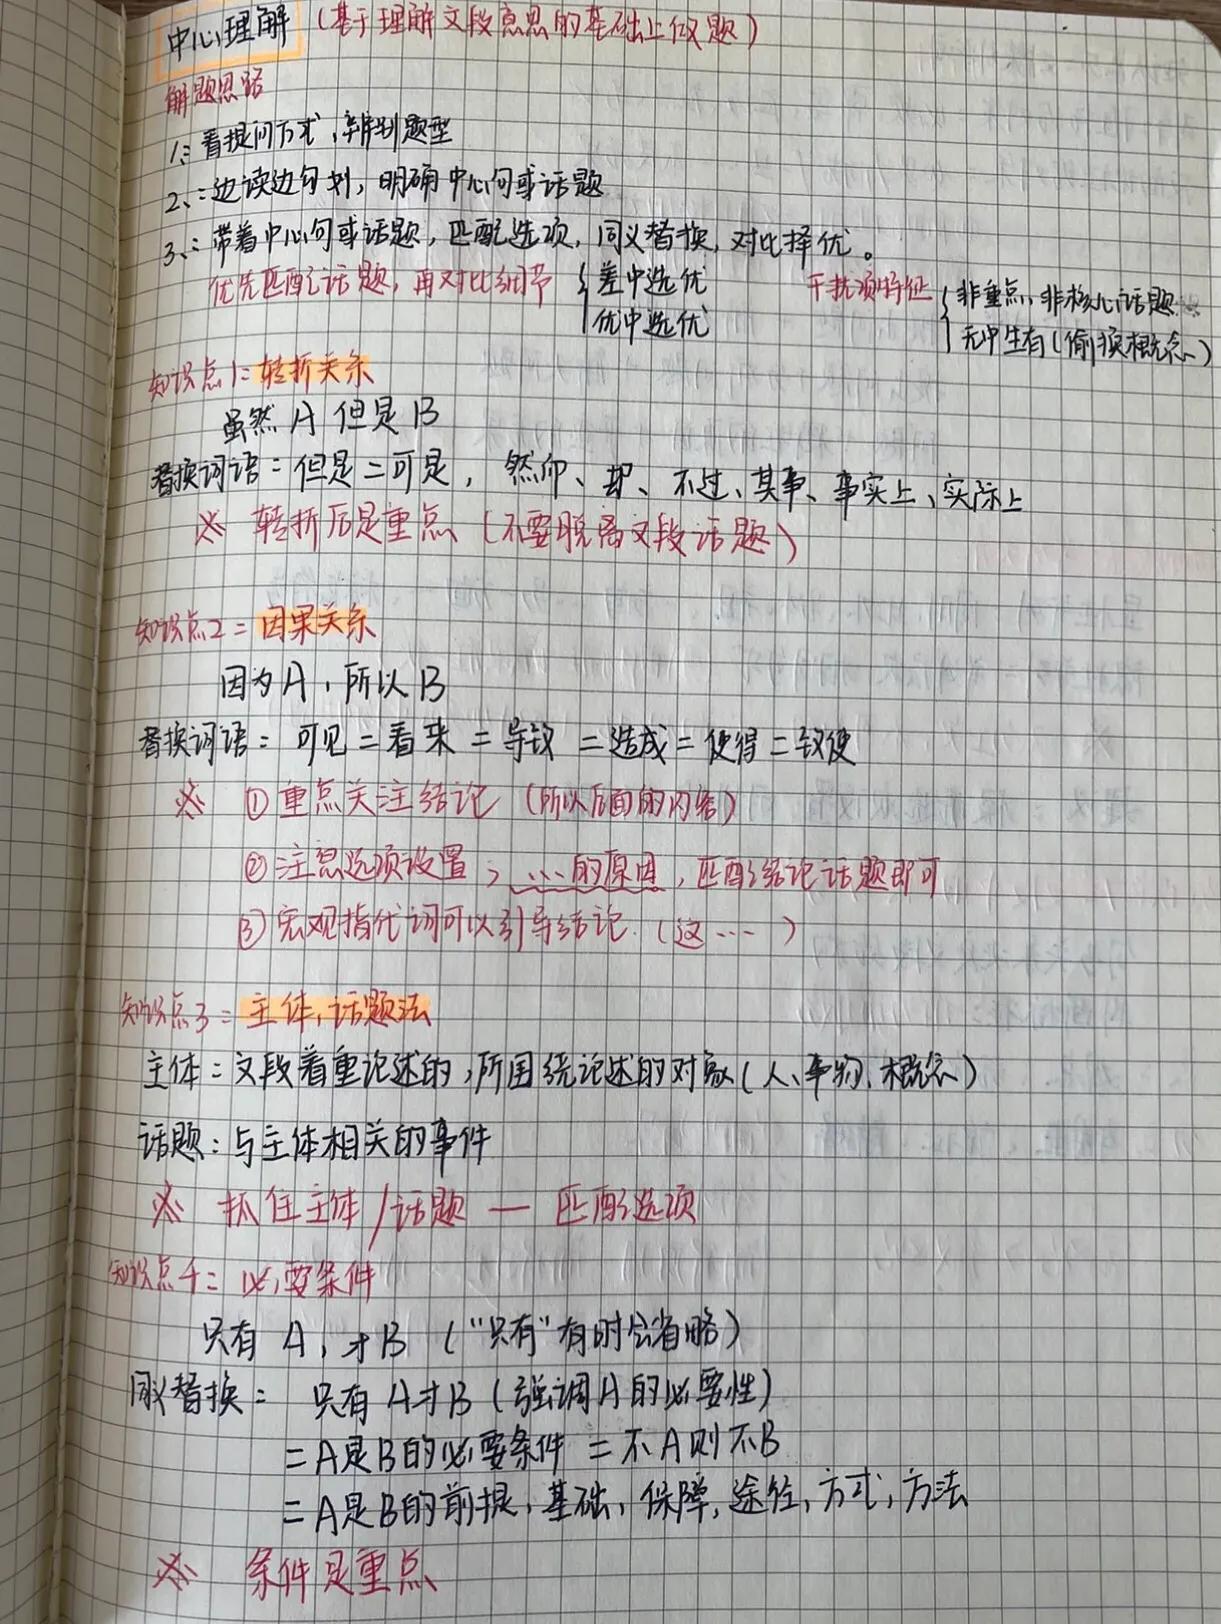 中心理解 (基于理解文段意思的基础上做题)
解题思路
1.: 看提问方式,辨别题型
2.: 边读边勾划,明确中心句或话题
3.: 带着中心句或话题,匹配选项,同义替换,对比择优。
优先匹配话题,再对比细节 { 差中选优 干扰项特征 { 非重点,非核心话题
优中选优 无中生有(偷换概念)
知识点1: 转折关系
虽然 A 但是 B
替换词语: 但是=可是, 然而、却、不过、其事、事实上、实际上
※ 转折后是重点 (不要脱离文段话题)
知识点2= 因果关系
因为A,所以B
替换词语: 可见=看来=导致=造成=使得=致使
※ ①重点关注结论 (所以后面的内容)
②注意选项设置, ...的原因,匹配结论话题即可
③宏观指代词可以引导结论.(这...)
知识点3= 主体,话题法
主体: 文段着重论述的,所围绕论述的对象(人、事物、概念)
话题: 与主体相关的事件
※ 抓住主体/话题 — 匹配选项
知识点4= 必要条件
只有 A,才B ("只有"有时会省略)
同义替换= 只有A才B(强调A的必要性)
=A是B的必要条件=不A则不B
=A是B的前提,基础,保障,途径,方式,方法
※ 条件是重点